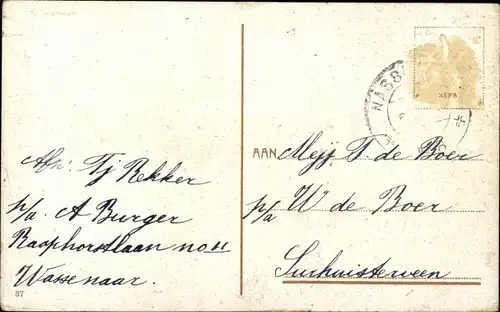 Afz: Tj Bekker
p/a. A Burger
Raaphorstlaan no 11
Wassenaar.
37
AAN Mejj T. de Boer
p/a W de Boer
Surhuisterveen
NASS